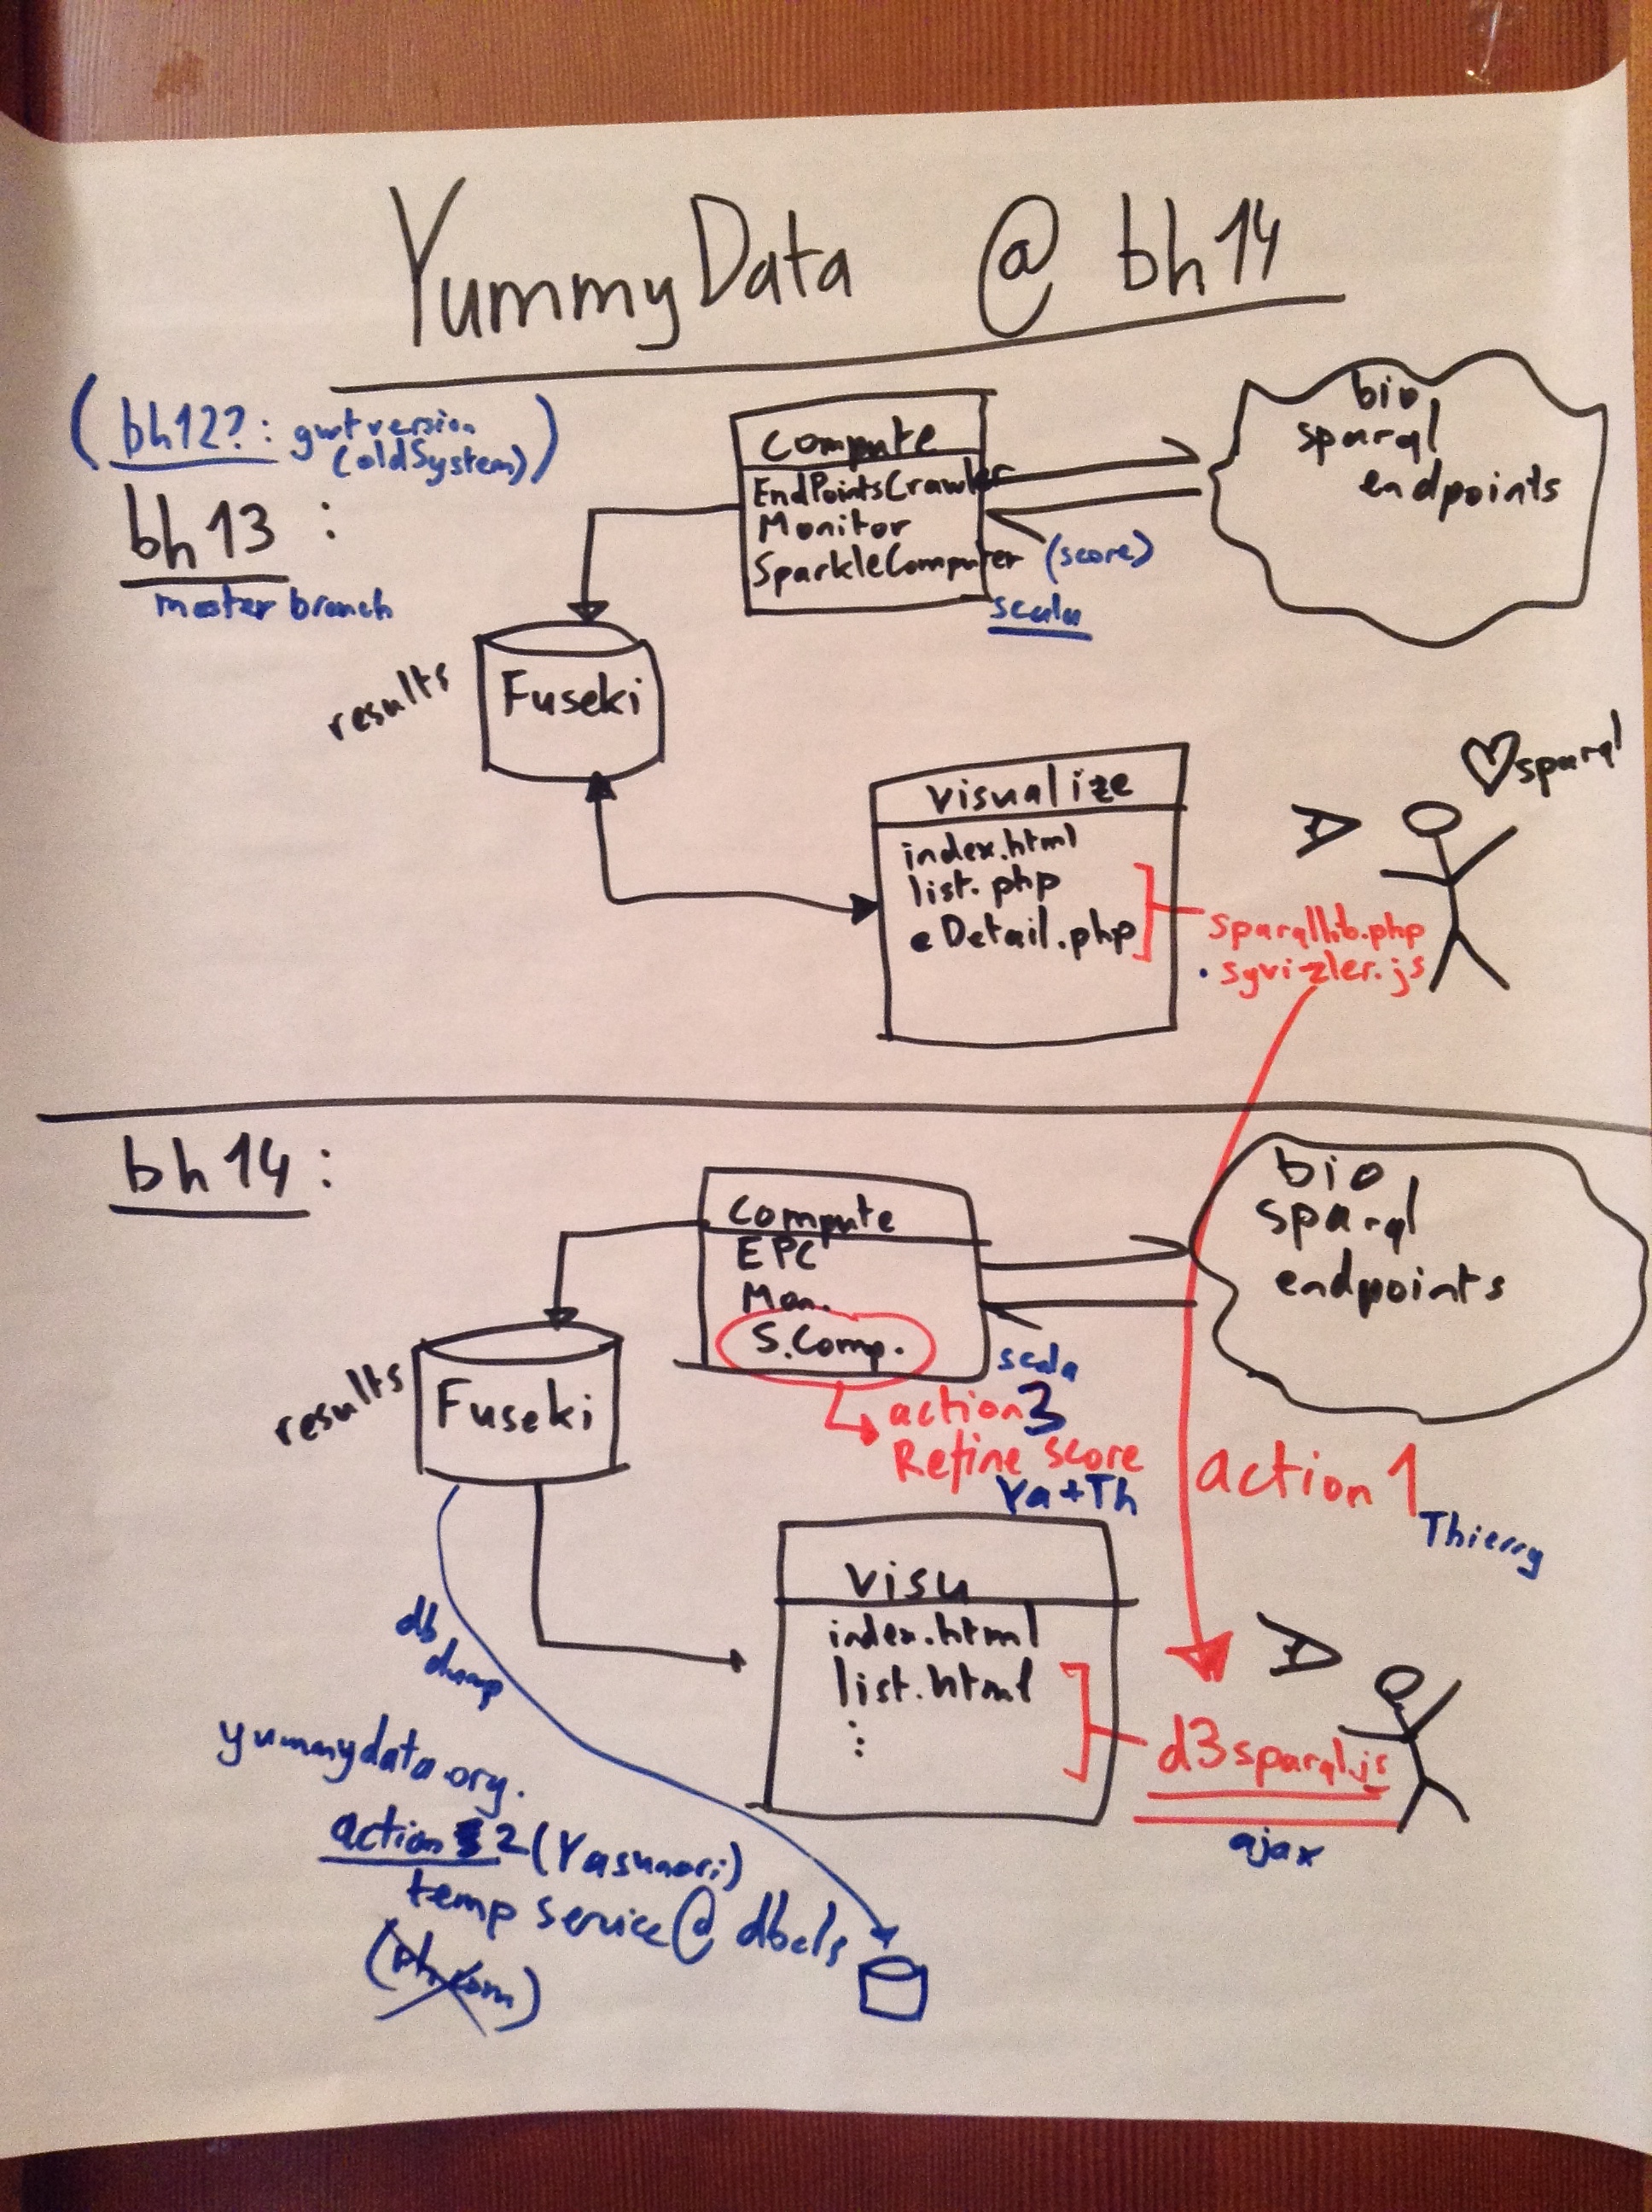 YummyData @ bh14
(bh12?: gwt version
(oldSystem))
bh13 :
master branch
compute
EndPointsCrawler
Monitor
SparkleComputer (score)
scala
bio
sparql
endpoints
results
Fuseki
visualize
index.html
list.php
eDetail.php
♡sparql
sparqllib.php
. sgvizler.js
bh14 :
compute
EPC
Mon.
S.Comp.
scala
action 3
Refine score
Ya+Th
bio
sparql
endpoints
results
Fuseki
action 1
Thierry
visu
index.html
list.html
⋮
d3sparql.js
ajax
db
dump
yummydata.org.
action 2 (Yasunori)
temp service @ dbcls